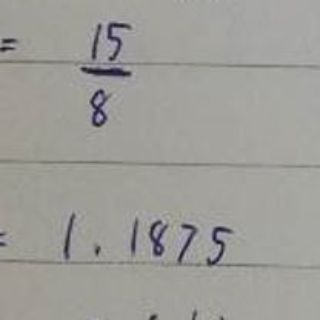 = 15
8
= 1.1875